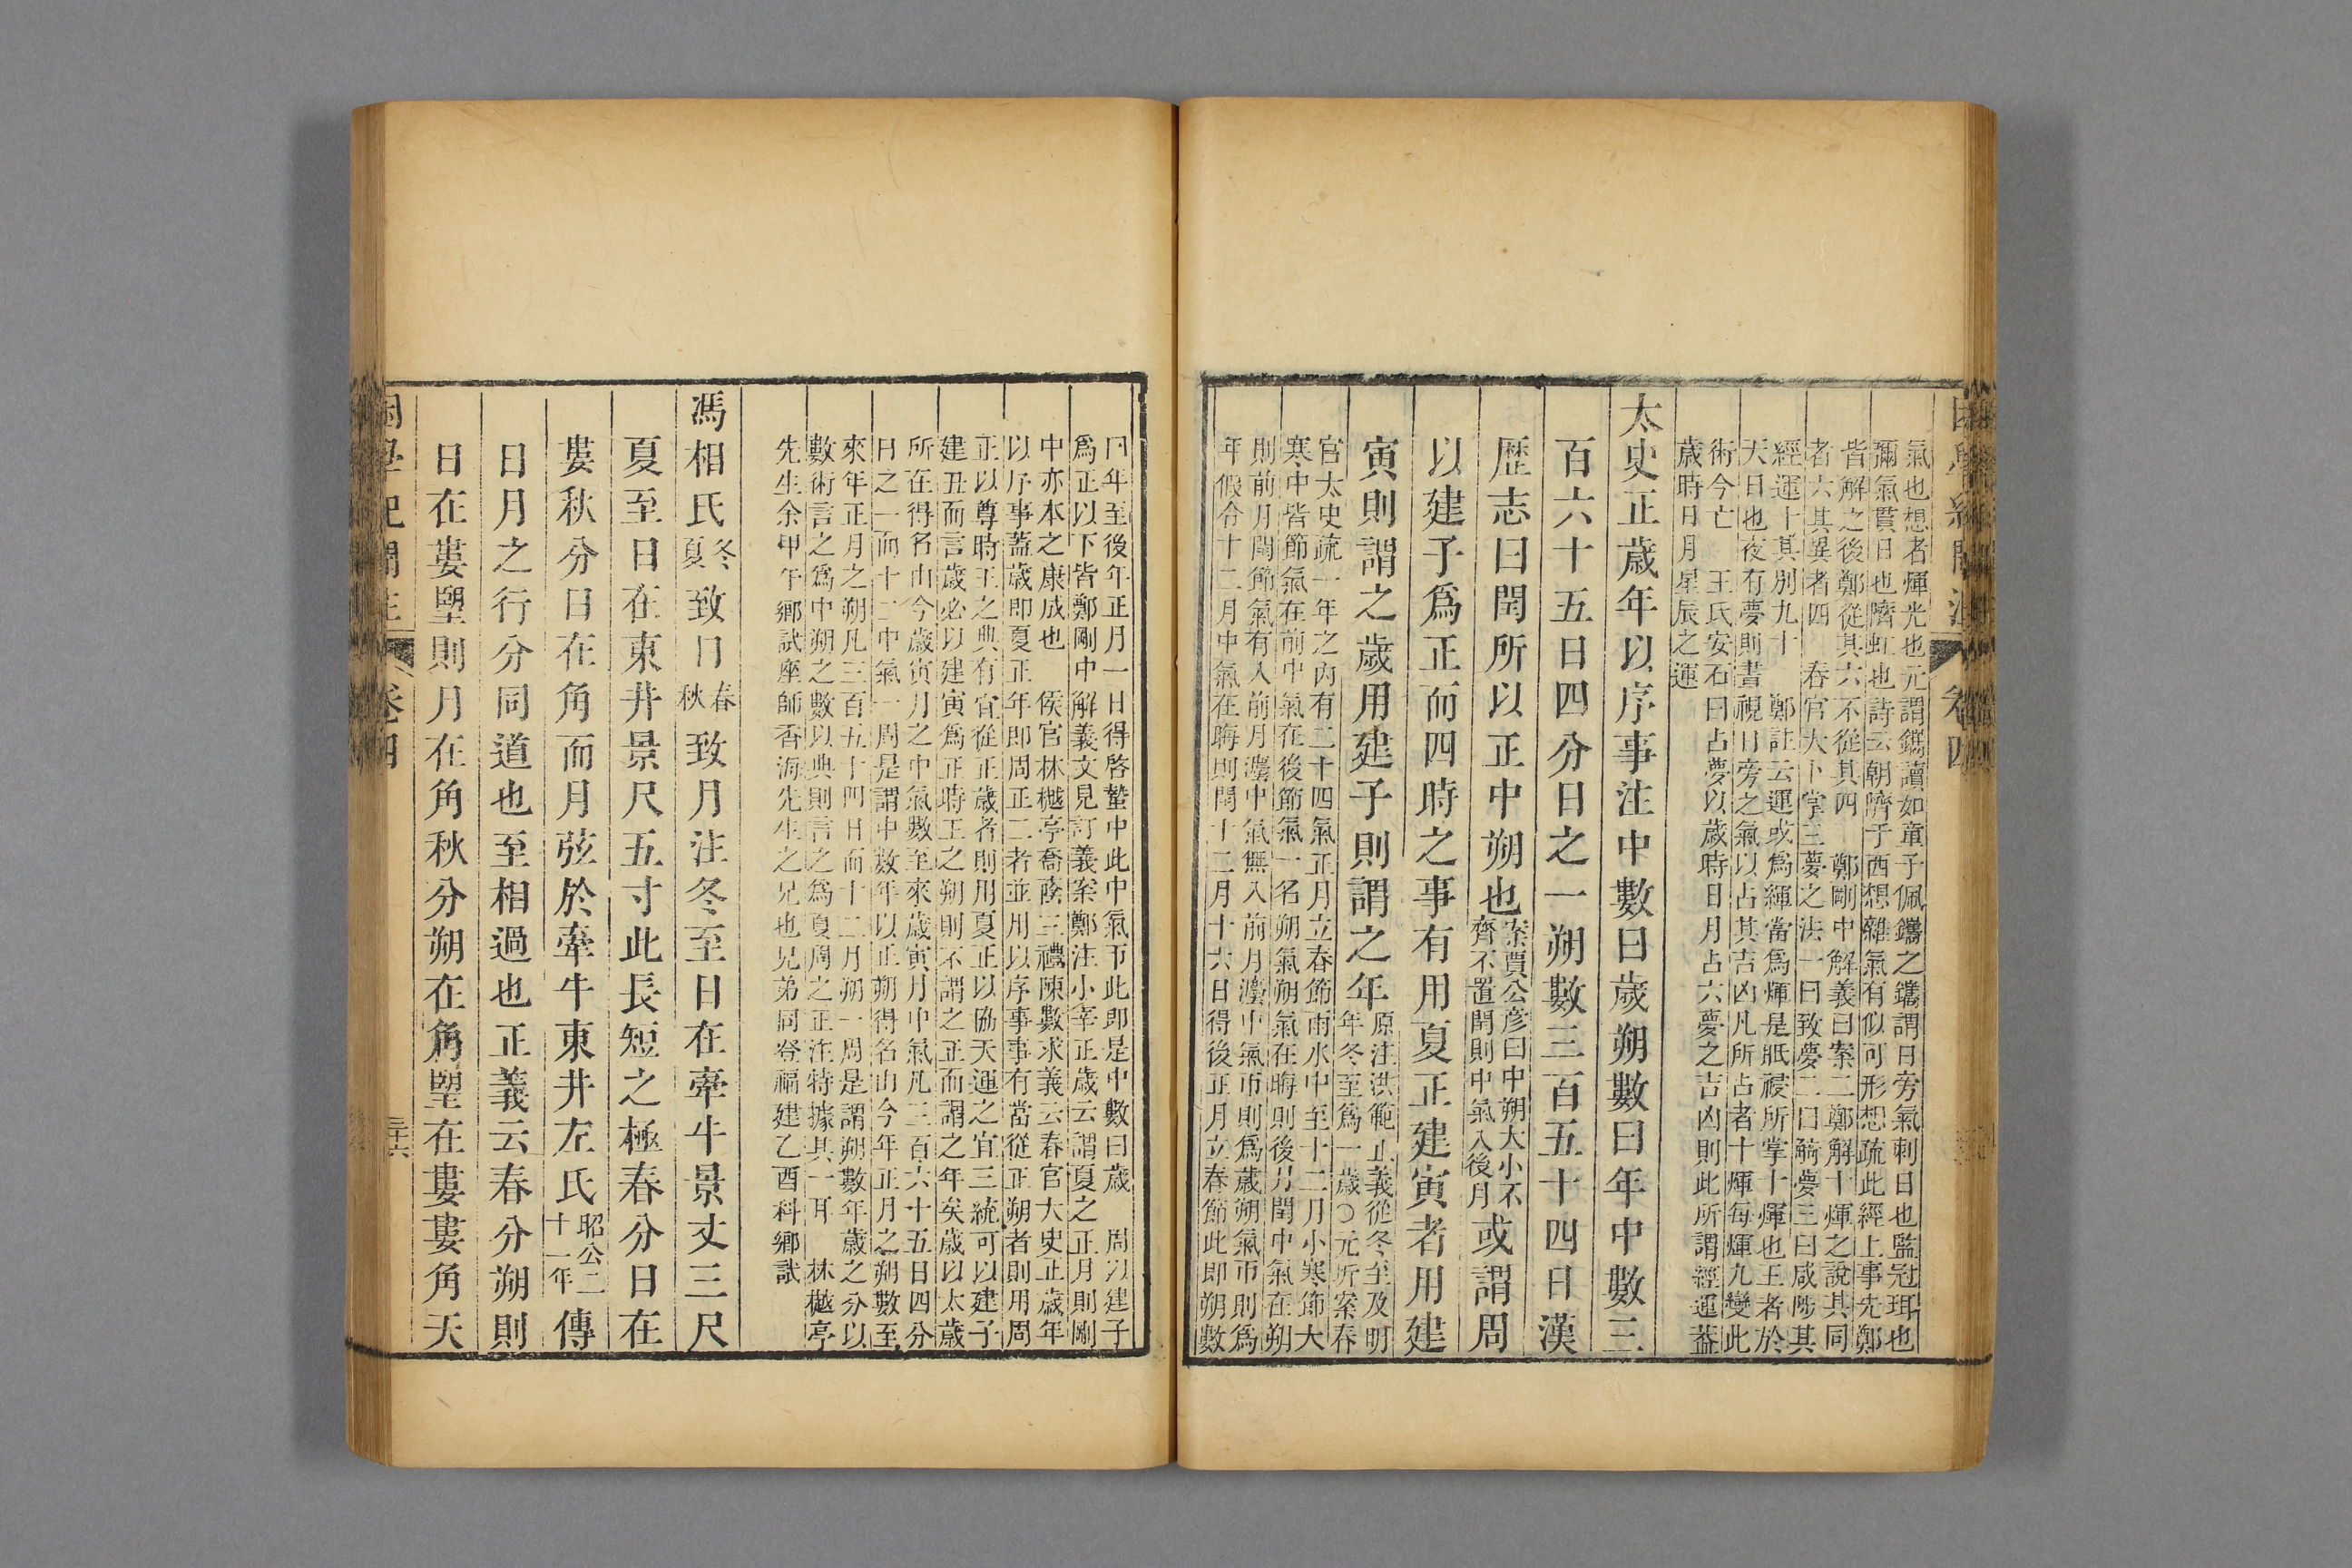 氣也想者煇光也元謂鑴讀如童子佩鑴之鑴謂日旁氣刺日也監冠珥也
彌氣貫日也隮虹也詩云朝隮于西想雜氣有似可形想疏此經上事先鄭
皆解之後鄭從其六不從其四　鄭剛中解義曰案二鄭解十煇之說其同
者六其異者四　春官大卜掌三夢之法一曰致夢二曰觭夢三曰咸陟其
經運十其別九十　鄭註云運或爲緷當爲煇是眡祲所掌十煇也王者於
天日也夜有夢則晝視日旁之氣以占其吉凶凡所占者十煇每煇九變此
術今亡　王氏安石曰占夢以歲時日月占六夢之吉凶則此所謂經運蓋
歲時日月星辰之運
太史正歲年以序事注中數曰歲朔數曰年中數三
百六十五日四分日之一朔數三百五十四日漢
歷志曰閏所以正中朔也案賈公彥曰中朔大小不齊不置閏則中氣入後月或謂周
以建子爲正而四時之事有用夏正建寅者用建
寅則謂之歲用建子則謂之年原注洪範正義從冬至及明年冬至爲一歲○元圻案春
官太史疏一年之內有二十四氣正月立春節雨水中至十二月小寒節大
寒中皆節氣在前中氣在後節氣一名朔氣朔氣在晦則後月閏中氣在朔
則前月閏節氣有入前月灋中氣無入前月灋中氣帀則爲歲朔氣帀則爲
年假令十二月中氣在晦則閏十二月十六日得後正月立春節此即朔數
曰年至後年正月一日得啓蟄中此中氣帀此即是中數曰歲　周以建子
爲正以下皆鄭剛中解義文見訂義案鄭注小宰正歲云謂夏之正月則剛
中亦本之康成也　侯官林樾亭喬蔭三禮陳數求義云春官大史正歲年
以序事蓋歲即夏正年即周正二者並用以序事事有當從正朔者則用周
正以尊時王之典有宜從正歲者則用夏正以協天運之宜三統可以建子
建丑而言歲必以建寅爲正時王之朔則不謂之正而謂之年矣歲以太歲
所在得名由今歲寅月之中氣數至來歲寅月中氣凡三百六十五日四分
日之一而十二中氣一周是謂中數年以正朔得名由今年正月之朔數至
來年正月之朔凡三百五十四日而十二月朔一周是謂朔數年歲之分以
數術言之爲中朔之數以典則言之爲夏周之正注特據其一耳　林樾亭
先生余甲午鄉試座師香海先生之兄也兄弟同登福建乙酉科鄉試
馮相氏冬夏致日春秋致月注冬至日在牽牛景丈三尺
夏至日在東井景尺五寸此長短之極春分日在
婁秋分日在角而月弦於牽牛東井左氏昭公二十一年傳
日月之行分同道也至相過也正義云春分朔則
日在婁朢則月在角秋分朔在角朢在婁婁角天
困學紀聞注　卷四　三十六